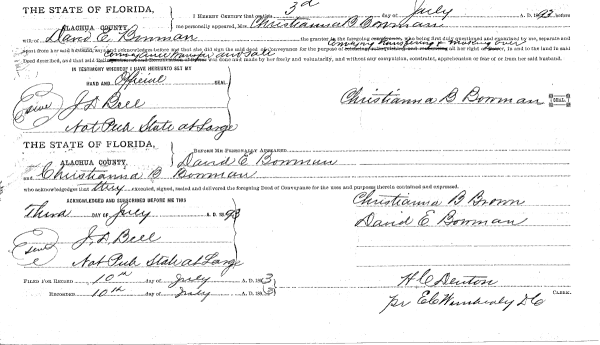 THE STATE OF FLORIDA,
ALACHUA COUNTY
I HEREBY CERTIFY that on this 3d day of July A. D. 93 before
me personally appeared, Mrs. Christianna B Bowman
wife of David E. Bowman the grantor in the foregoing who, being first duly questioned and examined by me, separate and
apart from her said husband, acknowledged before me that she did sign the said deed of Conveyance for the purpose of Conveying Transferring & making over all her right in and to the land in said
Deed described, and that said was done and made by her freely and voluntarily, and without any compulsion, constraint apprehension or fear of or from her said husband.
IN TESTIMONY WHEREOF I HAVE HEREUNTO SET MY
HAND AND Official SEAL
J. D. Bell
Not Pub State at Large
Christianna B Bowman SEAL
THE STATE OF FLORIDA,
ALACHUA COUNTY.
BEFORE ME PERSONALLY APPEARED
David E Bowman
and Christianna B Bowman
who acknowledges that they executed, signed, sealed and delivered the foregoing Deed of Conveyance for the uses and purposes therein contained and expressed.
ACKNOWLEDGED AND SUBSCRIBED BEFORE ME THIS
Third DAY OF July A. D. 1893
Christianna B Brown
David E Bowman
J. D. Bell
Not Pub State at Large
FILED FOR RECORD 10th day of July A. D. 1893
RECORDED 10th day of July A. D. 1893
H C Denton CLERK.
pr E C Wimberly D C